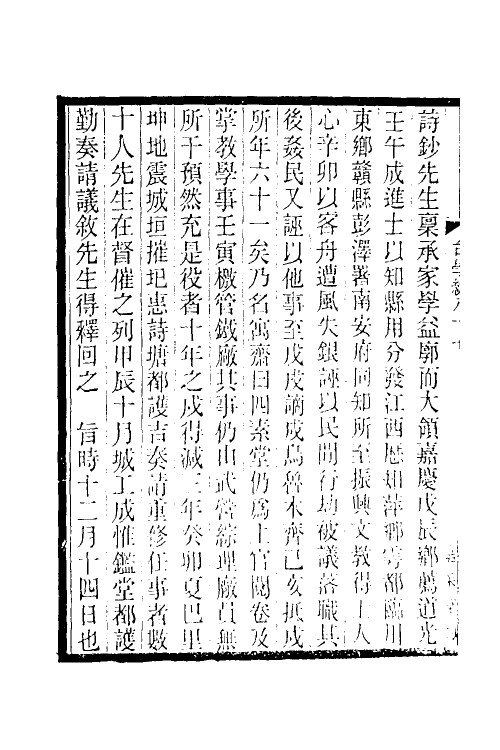 詩鈔先生稟承家學益廓而大領嘉慶戊辰鄉薦道光
壬午成進士以知縣用分發江西歷知萍鄉雩都臨川
東鄉贛縣彭澤署南安府同知所至振興文教得士人
心辛卯以客舟遭風失銀誣以民間行劫被議落職其
後姦民又誣以他事至戊戌謫戍烏魯木齊己亥抵戍
所年六十一矣乃名寓齋曰四素堂仍爲上官閱卷及
掌教學事壬寅檄管鐵廠其事仍由武營綜理廠員無
所干預然充是役者十年之戍得減三年癸卯夏巴里
坤地震城垣摧圮惠詩塘都護吉奏請重修任事者數
十人先生在督催之列甲辰十月城工成惟鑑堂都護
勤奏請議敘先生得釋回之　旨時十二月十四日也
台學統八十七